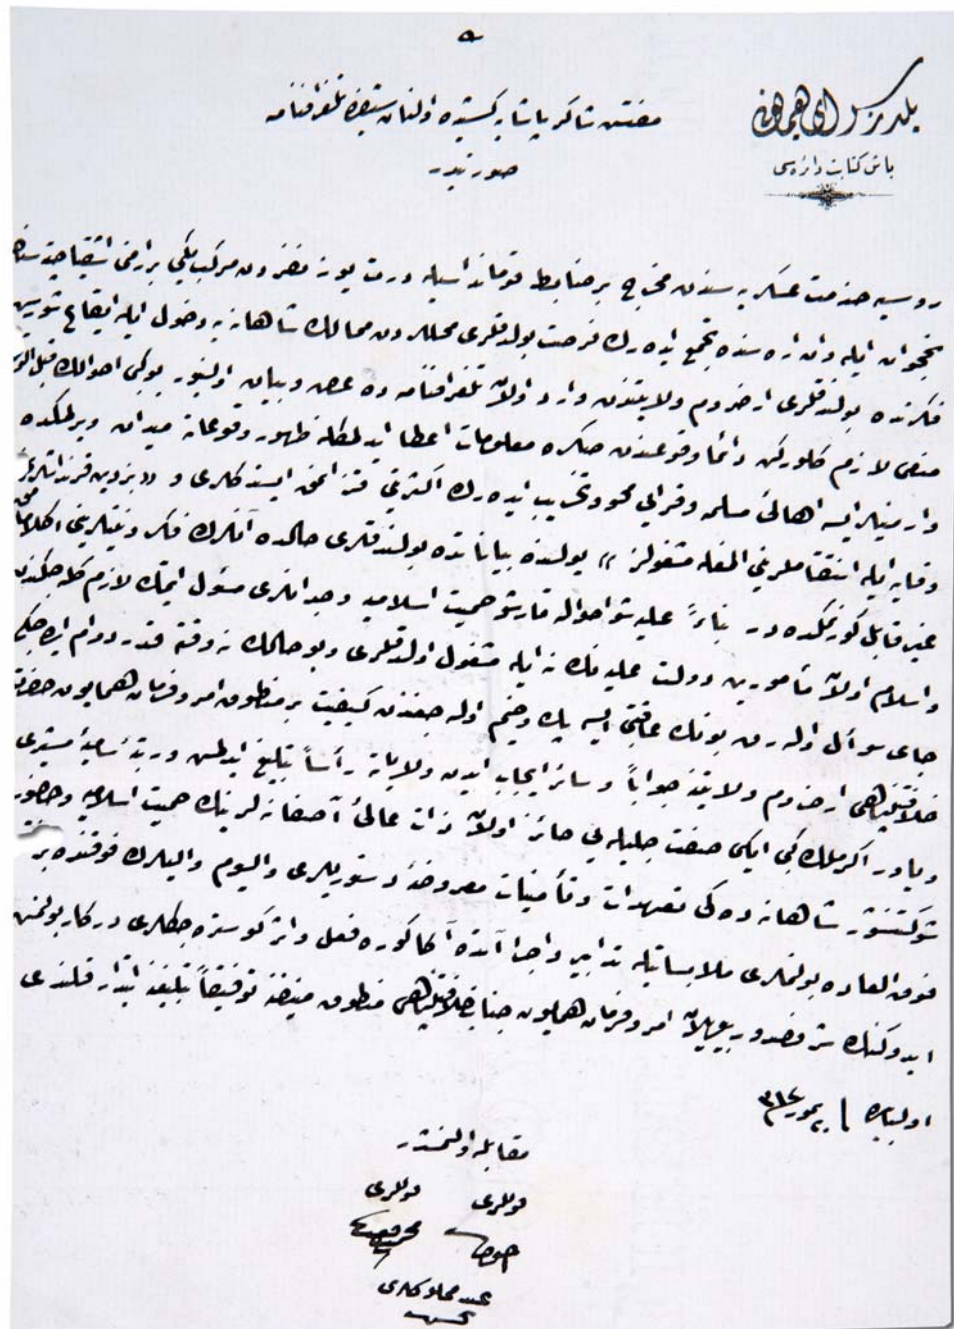 يلديز سراى همايونى
باش كتابت دائره سى
مفتش شاكر پاشايه كشيده اولنان شفره تلغرافنامه
صورتيدر
روسيه خدمت عسكريه سندن مخرج بر ضابط قومانداسيله درت يوز نفردن مركب ايكى ارمنى اشقيا چته سنك
نخجوان ايله وان اره سنده تجمع ايده رك فرصت بولدقلرى محللردن ممالك شاهانه يه دخول ايله ايقاع شورش
فكرنده بولندقلرى ارضروم ولايتندن وارد اولان تلغرافنامه ده عرض وبيان اولنيور بو كبى احوالك قبل الوقوع
منعى لازم كلوركن دائما وقوعندن صكره معلومات اعطا ايدلمكله ظهور وقوعاته ميدان ويرلمكده
وارمنيلر ايسه اهالئ مسلمه وقرايى محو وتخريب ايده رك اكثريتى قزانمق ايستدكلرى و
وقايه ايله انتقاملرينى المغله مشغولز » يولنده بياناتده بولندقلرى حالده آنلرك فكر ونيتلرينى اكلامامق
غير قابل كورنمكده در بناءً عليه شو احواله قارشو حميت اسلاميه وجدانلرى مسئول ايتمك لازم كله جكندن
واسلام اولان مأمورين دولت عليه نك نه ايله مشغول اولدقلرى وبو حالك نه وقته قدر دوام ايده جكى
جاى سؤال اوله رق بونك عاقبتى ايسه پك وخيم اوله جغندن كيفيت بر منطوق امر وفرمان همايون حضرت
خلافتپناهى ارضروم ولايتنه جواباً وسائر ايجاب ايدن ولاياته رأساً تبليغ ايدلمش ورتبۀ ساميۀ مشيرى
وياور اكرملك كبى ايكى صفت جليله يى حائز اولان ذات عالئ آصفانه لرينك حميت اسلاميه وحضور
شوكتنشور شاهانه ده كى تعهدات وتأمينات معروضه دستوريلرى واليوم واليلرك فوقنده بر
فوق العاده بولنملرى ملابسه سيله تدابير واجرا آتده اكا كوره فعل واثر كوستره جكلرى دركار بولنمش
ايدوكنك شرفصدور بيوريلان امر وفرمان همايون جناب خلافتپناهى منطوق منيفنه توفيقاً تبليغنه ابتدار قلندى
اولبابده ٢٠ تموز ٣١٢
مقابله اولنمشدر
قوللرى قوللرى
عبد مملوكلرى